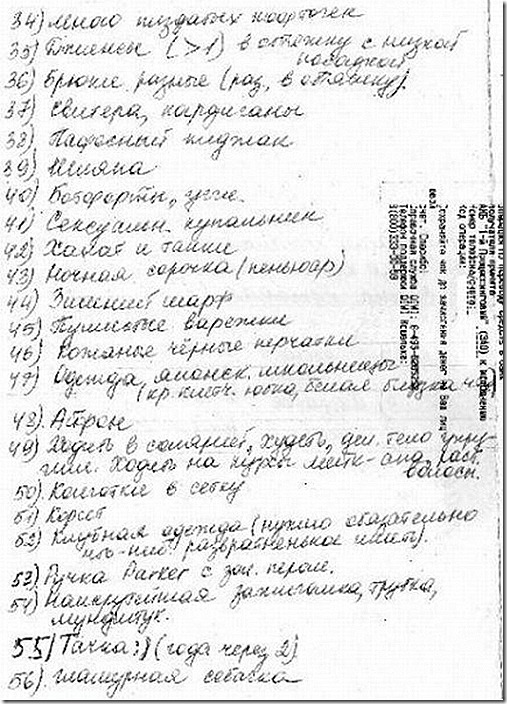 34) много пиздатых кофточек
35) Джинсы (>1) в обтяжку с низкой
посадкой
36) Брюки разные (раз. в обтяжку).
37) Свитера, кардиганы
38) Пафосный пиджак
39) Шляпа
40) Ботфорты, угги.
41) Сексуальн. купальник
42) Халат и тапки
43) Ночная сорочка (пеньюар)
44) Зимний шарф
45) Пушистые варежки
46) Кожаные чёрные перчатки
47) Одежда, японск. школьницы
(кр. клетч. юбка, белая блузка
48) Айфон
49) Ходить в солярий, худеть, дел. тело упру-
гим. Ходить на курсы мейк-апа, раст.
волосы.
50) Колготки в сетку
51) Корсет
52) Клубная одежда (нужно обязательно
что-ниб. развратненькое иметь).
53) Ручка Parker с зол. пером.
54) Наикрутейшая зажигалка, трубка,
мундштук.
55) Тачка :) (года через 2)
56) гламурная собачка
Сохраняйте чек до зачисления денег на Ваш лиц
счет. Спасибо!
Справочная служба
Телефон поддержки
Код операции: